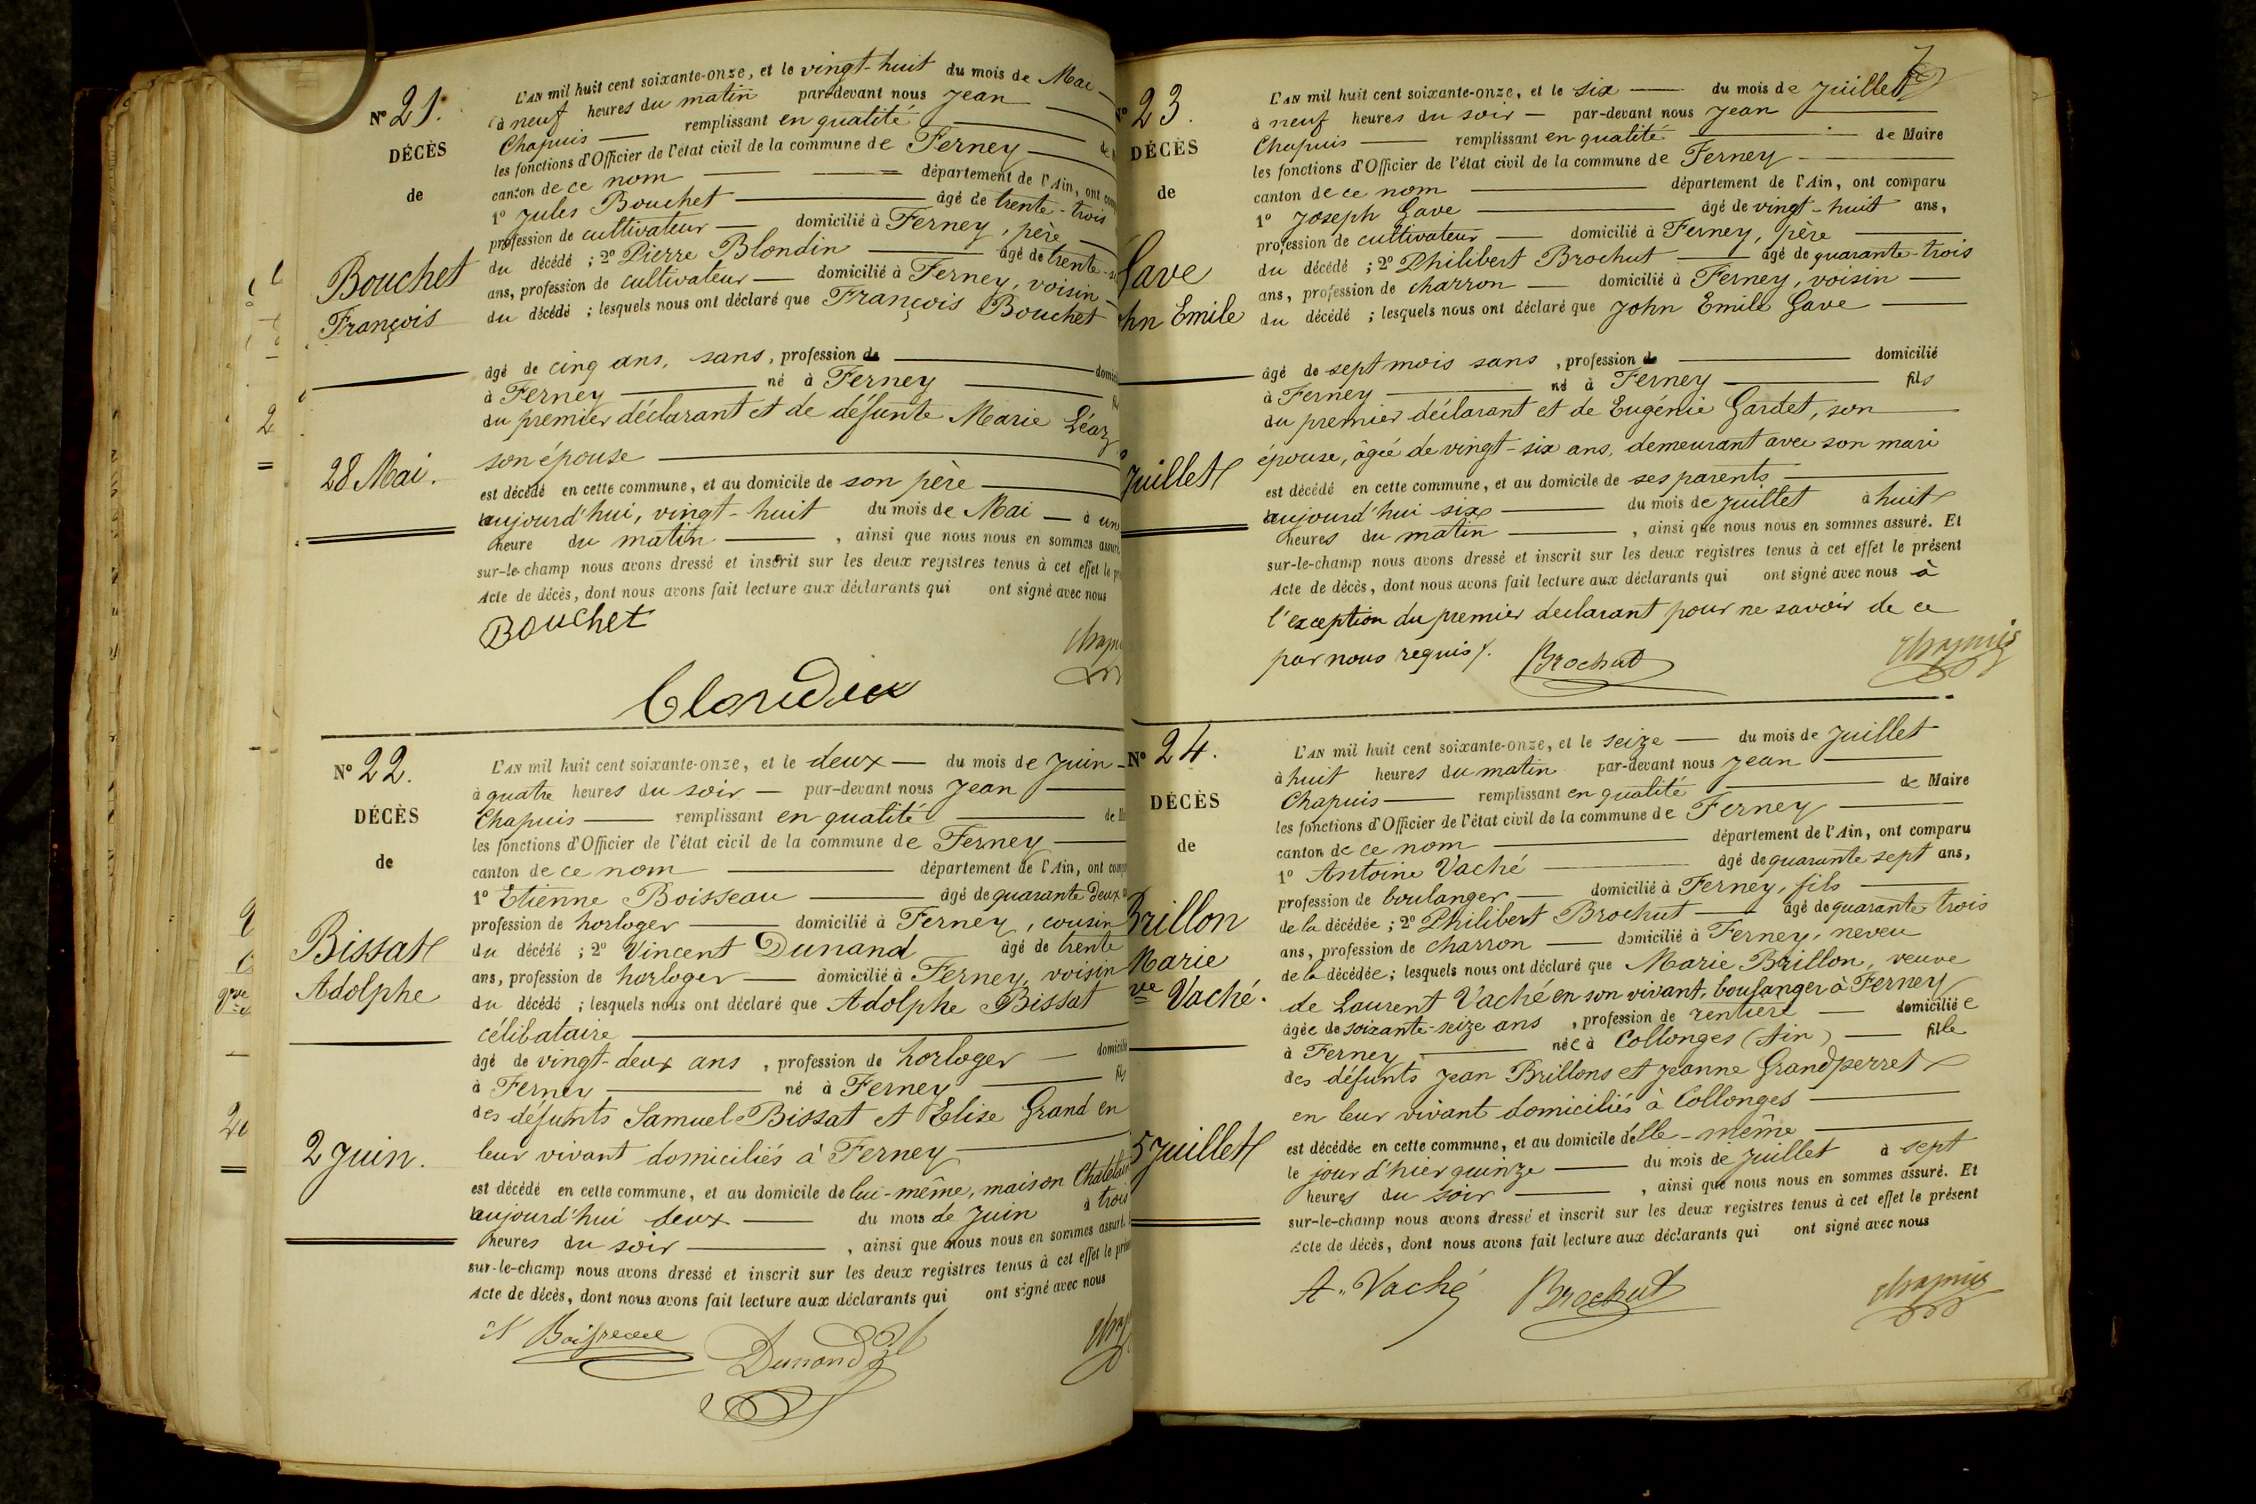 N° 21.
DÉCÈS
de
Bouchet
François
28 Mai.
L'AN mil huit cent soixante-onze, et le vingt-huit du mois de Mai
à neuf heures du matin par-devant nous Jean
Chapuis remplissant en qualité
les fonctions d'Officier de l'état civil de la commune de Ferney
canton de ce nom département de l'Ain, ont
1° Jules Bouchet âgé de trente-trois
profession de cultivateur domicilié à Ferney, père
du décédé ; 2° Pierre Blondin âgé de trente
ans, profession de cultivateur domicilié à Ferney, voisin
du décédé ; lesquels nous ont déclaré que François Bouchet
âgé de cinq ans, sans, profession de
à Ferney né à Ferney
du premier déclarant et de défunte Marie Léaz
son épouse
est décédé en cette commune, et au domicile de son père
aujourd'hui, vingt-huit du mois de Mai à un
heure du matin , ainsi que nous nous en sommes
sur-le-champ nous avons dressé et inscrit sur les deux registres tenus à cet effet le
Acte de décès, dont nous avons fait lecture aux déclarants qui ont signé avec nous
Bouchet
N° 22.
DÉCÈS
de
Bissat
Adolphe
2 Juin.
L'AN mil huit cent soixante-onze, et le deux du mois de Juin
à quatre heures du soir par-devant nous Jean
Chapuis remplissant en qualité de
les fonctions d'Officier de l'état civil de la commune de Ferney
canton de ce nom département de l'Ain, ont
1° Etienne Boisseau âgé de quarante Deux
profession de horloger domicilié à Ferney, cousin
du décédé ; 2° Vincent Dunand âgé de trente
ans, profession de horloger domicilié à Ferney, voisin
du décédé ; lesquels nous ont déclaré que Adolphe Bissat
célibataire
âgé de vingt-deux ans , profession de horloger
à Ferney né à Ferney fils
des défunts Samuel Bissat et Elise Grand en
leur vivant domiciliés à Ferney
est décédé en cette commune, et au domicile de lui-même, maison
aujourd'hui deux du mois de Juin à trois
heures du soir , ainsi que nous nous en sommes
sur-le-champ nous avons dressé et inscrit sur les deux registres tenus à cet effet le
Acte de décès, dont nous avons fait lecture aux déclarants qui ont signé avec nous
Dunand
23.
DÉCÈS
de
Gave
Emile
Juillet
L'AN mil huit cent soixante-onze, et le six du mois de Juillet
à neuf heures du soir par-devant nous Jean
Chapuis remplissant en qualité de Maire
les fonctions d'Officier de l'état civil de la commune de Ferney
canton de ce nom département de l'Ain, ont comparu
1° Joseph Gave âgé de vingt-huit ans,
profession de cultivateur domicilié à Ferney, père
du décédé ; 2° Philibert Brochut âgé de quarante-trois
ans, profession de charron domicilié à Ferney, voisin
du décédé ; lesquels nous ont déclaré que John Emile Gave
âgé de sept mois sans , profession de domicilié
à Ferney né à Ferney fils
du premier déclarant et de Eugénie Gardet, son
épouse, âgée de vingt-six ans, demeurant avec son mari
est décédé en cette commune, et au domicile de ses parents
aujourd'hui six du mois de Juillet à huit
heures du matin , ainsi que nous nous en sommes assuré. Et
sur-le-champ nous avons dressé et inscrit sur les deux registres tenus à cet effet le présent
Acte de décès, dont nous avons fait lecture aux déclarants qui ont signé avec nous à
l'exception du premier declarant pour ne savoir de ce
par nous requis.
Brochut Chapuis
N° 24.
DÉCÈS
de
Brillon
Marie
ve Vaché.
5 Juillet
L'AN mil huit cent soixante-onze, et le seize du mois de Juillet
à huit heures du matin par-devant nous Jean
Chapuis remplissant en qualité de Maire
les fonctions d'Officier de l'état civil de la commune de Ferney
canton de ce nom département de l'Ain, ont comparu
1° Antoine Vaché âgé de quarante sept ans,
profession de boulanger domicilié à Ferney, fils
de la décédée ; 2° Philibert Brochut âgé de quarante trois
ans, profession de charron domicilié à Ferney, neveu
de la décédée ; lesquels nous ont déclaré que Marie Brillon, veuve
de Laurent Vaché en son vivant, boulanger à Ferney
âgée de soixante-seize ans , profession de rentière domiciliée
à Ferney née à Collonges (Ain) fille
des défunts Jean Brillons et Jeanne Grandperret
en leur vivant domiciliés à Collonges
est décédée en cette commune, et au domicile d'elle-même
le jour d'hier quinze du mois de Juillet à sept
heures du soir , ainsi que nous nous en sommes assuré. Et
sur-le-champ nous avons dressé et inscrit sur les deux registres tenus à cet effet le présent
Acte de décès, dont nous avons fait lecture aux déclarants qui ont signé avec nous
A. Vaché Brochut Chapuis